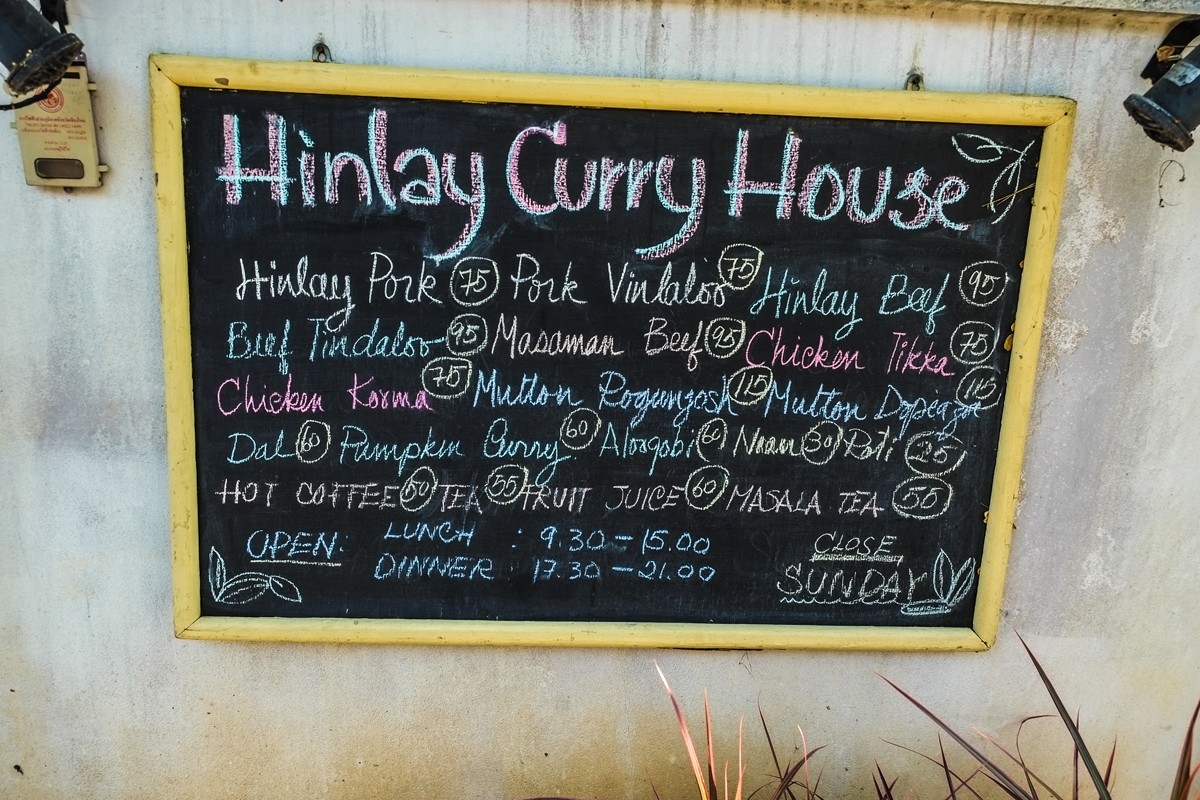 Hinlay Curry House
Hinlay Pork 75 Pork Vinlaloo 75 Hinlay Beef 95
Beef Tindaloo 95 Masaman Beef 95 Chicken Tikka 75
Chicken Korma 75 Mutton Rogunjosh 115 Mutton 115
Dal 60 Pumpkin Curry 60 Aloogobi 60 Naan 30 Roti 25
HOT COFFEE 50 TEA 55 FRUIT JUICE 60 MASALA TEA 55
OPEN: LUNCH : 9.30 - 15.00
DINNER : 17.30 - 21.00
CLOSE
SUNDAY